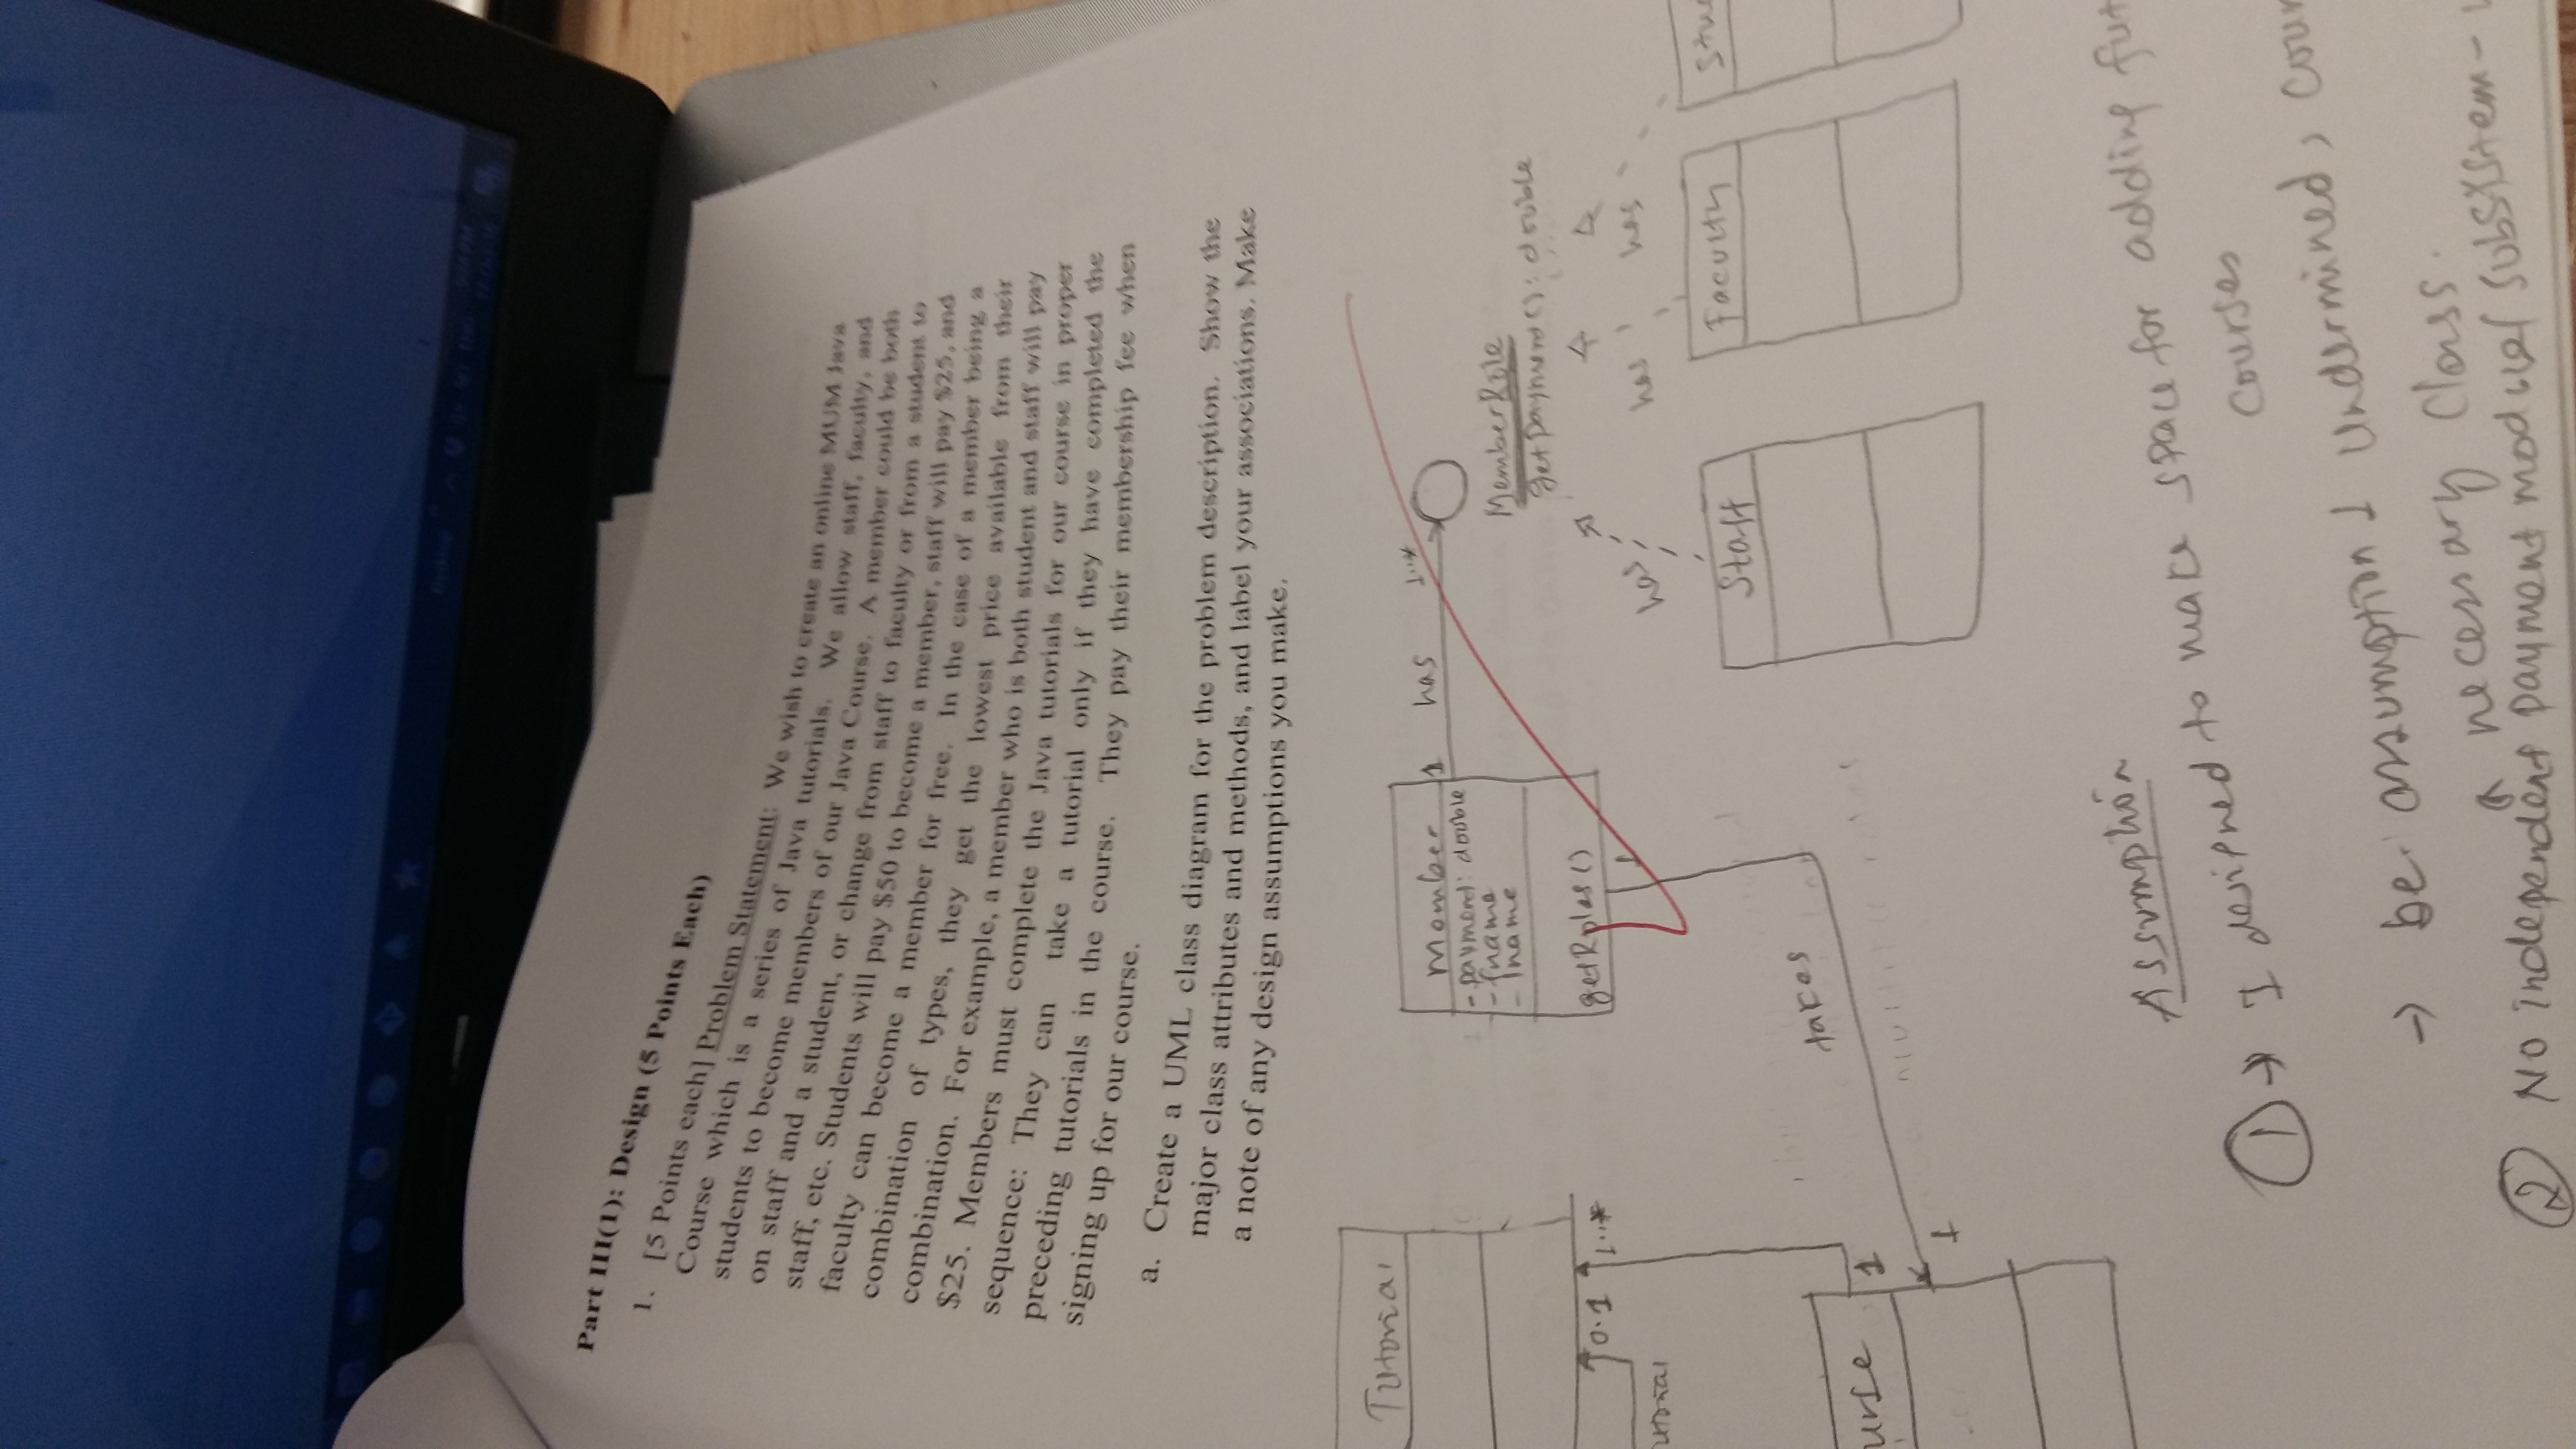 Part III(1): Design (5 Points Each)
1. [5 Points each] Problem Statement: We wish to create an online MUM Java
Course which is a series of Java tutorials. We allow staff, faculty, and
students to become members of our Java Course. A member could be both
on staff and a student, or change from staff to faculty or from a student to
staff, etc. Students will pay $50 to become a member, staff will pay $25, and
faculty can become a member for free. In the case of a member being a
combination of types, they get the lowest price available from their
combination. For example, a member who is both student and staff will pay
$25. Members must complete the Java tutorials for our course in proper
sequence: They can take a tutorial only if they have completed the
preceding tutorials in the course. They pay their membership fee when
signing up for our course.
a. Create a UML class diagram for the problem description. Show the
major class attributes and methods, and label your associations. Make
a note of any design assumptions you make.
Tutorial
Member
1 has 1..*
- payment: double
- fname
- lname
MemberRole
getPayment(): double
getRoles()
0.1 1..*
1
utorial
has has has
Staff
Faculty
Stu
takes
urse
1
1
Assumption
1 → I designed to make space for adding fut
courses
→ be. assumption 1 undermined, cour
a necessary class.
2 No independent payment